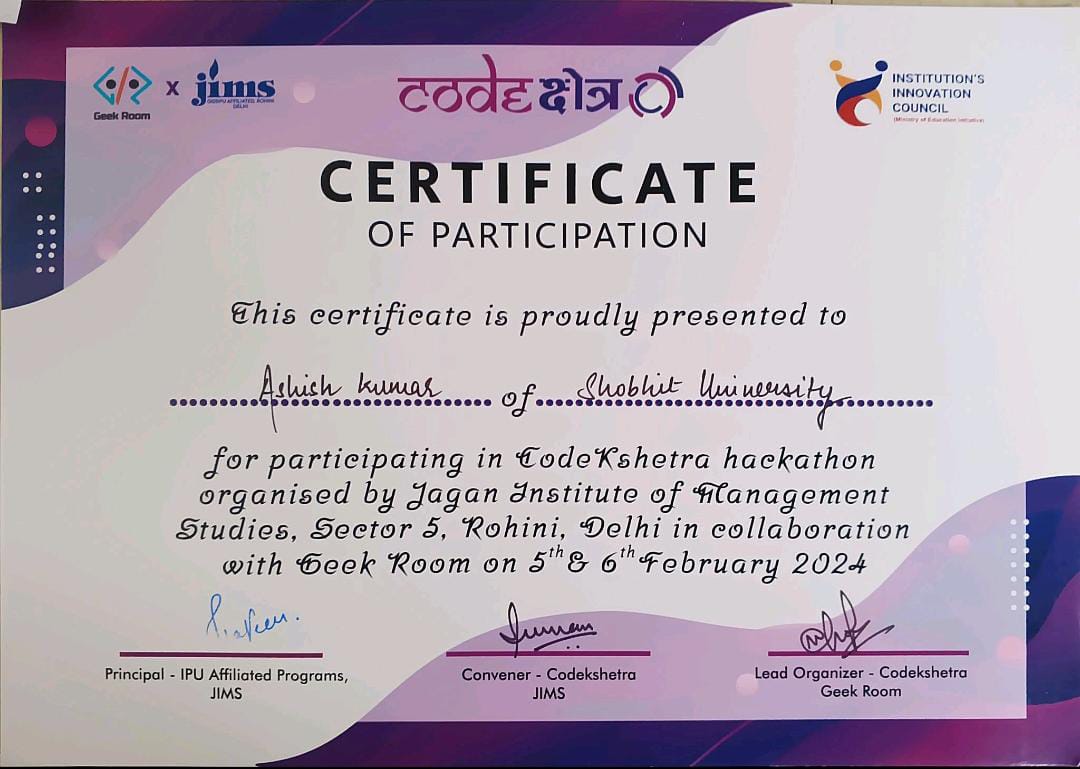 Geek Room
X
jims
codeक्षेत्र
INSTITUTION'S
INNOVATION
COUNCIL
(Ministry of Education Initiative)
CERTIFICATE
OF PARTICIPATION
This certificate is proudly presented to
Ashish Kumar of Shobhit University
for participating in CodeKshetra hackathon
organised by Jagan Institute of Management
Studies, Sector 5, Rohini, Delhi in collaboration
with Geek Room on 5th & 6th February 2024
Principal - IPU Affiliated Programs,
JIMS
Convener - Codekshetra
JIMS
Lead Organizer - Codekshetra
Geek Room